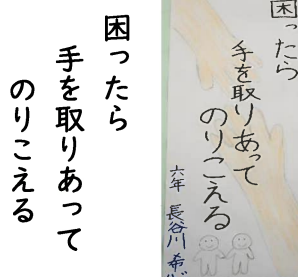 困ったら
手を取りあって
のりこえる
困ったら
手を取りあって
のりこえる
六年 長谷川 希